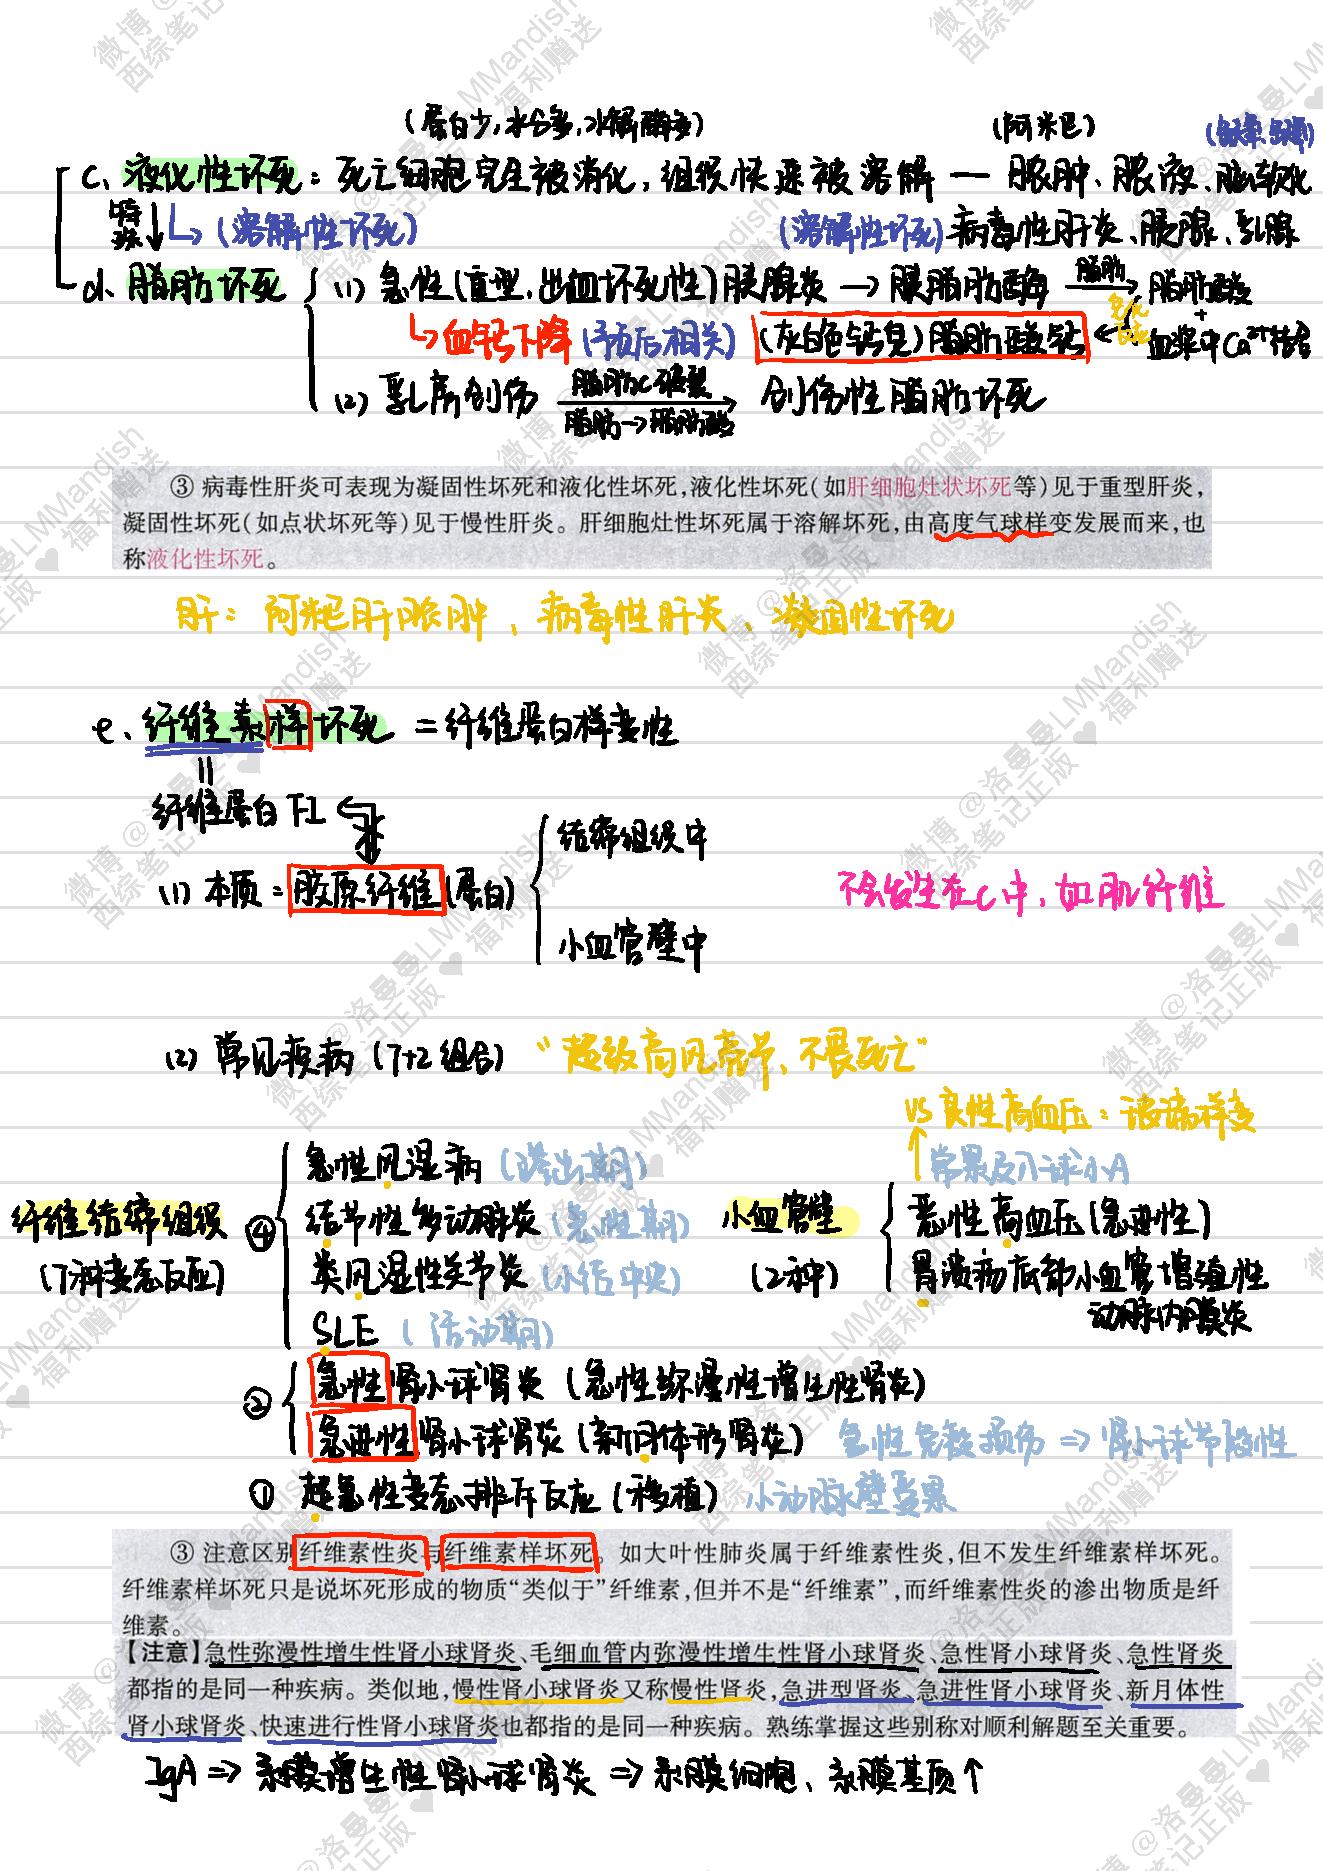 (蛋白少,水分多,水解酶多) (阿米巴)
c、液化性坏死：死亡细胞完全被消化,组织快速被溶解 — 脓肿、脓液、脑软化
特殊 ↳(溶解性坏死) (溶解性坏死) 病毒性肝炎、胰腺、乳腺
d、脂肪坏死 (1) 急性(重型、出血坏死性)胰腺炎 → 胰脂肪酶 脂肪→ 脂肪酸
+
↳血钙下降(予预后相关) (灰白色钙皂)脂肪酸钙 ← 皂化反应 血浆中Ca²⁺结合
(2) 乳房创伤 脂肪C破裂 创伤性脂肪坏死
脂肪→脂肪酸
③ 病毒性肝炎可表现为凝固性坏死和液化性坏死,液化性坏死(如肝细胞灶状坏死等)见于重型肝炎,
凝固性坏死(如点状坏死等)见于慢性肝炎。肝细胞灶性坏死属于溶解坏死,由高度气球样变发展而来,也
称液化性坏死。
肝：阿米巴肝脓肿、病毒性肝炎、凝固性坏死
e、纤维素样坏死 =纤维蛋白样变性
||
纤维蛋白 FI
结缔组织中
(1) 本质=胶原纤维(蛋白) 不会发生在c中,如肌纤维
小血管壁中
(2) 常见疾病 (7+2组合) “超级高风亮节、不畏死亡”
VS 良性高血压：玻璃样变
急性风湿病 (渗出期) 常累及入球小A
纤维结缔组织 ④ 结节性多动脉炎 (急性期) 小血管壁 恶性高血压(急进性)
(7种变态反应) 类风湿性关节炎 (小结中央) (2种) 胃溃疡底部小血管增殖性
动脉内膜炎
SLE (活动期)
② 急性肾小球肾炎 (急性弥漫性增生性肾炎)
急进性肾小球肾炎 (新月体形肾炎) 急性免疫损伤 ⇒ 肾小球节段性
① 超急性变态排斥反应 (移植) 小动脉壁受累
③ 注意区别纤维素性炎与纤维素样坏死。如大叶性肺炎属于纤维素性炎,但不发生纤维素样坏死。
纤维素样坏死只是说坏死形成的物质“类似于”纤维素,但并不是“纤维素”,而纤维素性炎的渗出物质是纤
维素。
【注意】急性弥漫性增生性肾小球肾炎、毛细血管内弥漫性增生性肾小球肾炎、急性肾小球肾炎、急性肾炎
都指的是同一种疾病。类似地,慢性肾小球肾炎又称慢性肾炎,急进型肾炎、急进性肾小球肾炎、新月体性
肾小球肾炎、快速进行性肾小球肾炎也都指的是同一种疾病。熟练掌握这些别称对顺利解题至关重要。
IgA ⇒ 系膜增生性肾小球肾炎 ⇒ 系膜细胞、系膜基质↑
微博 @洛曼曼LMMandish
西综笔记正版 ♥ 福利赠送